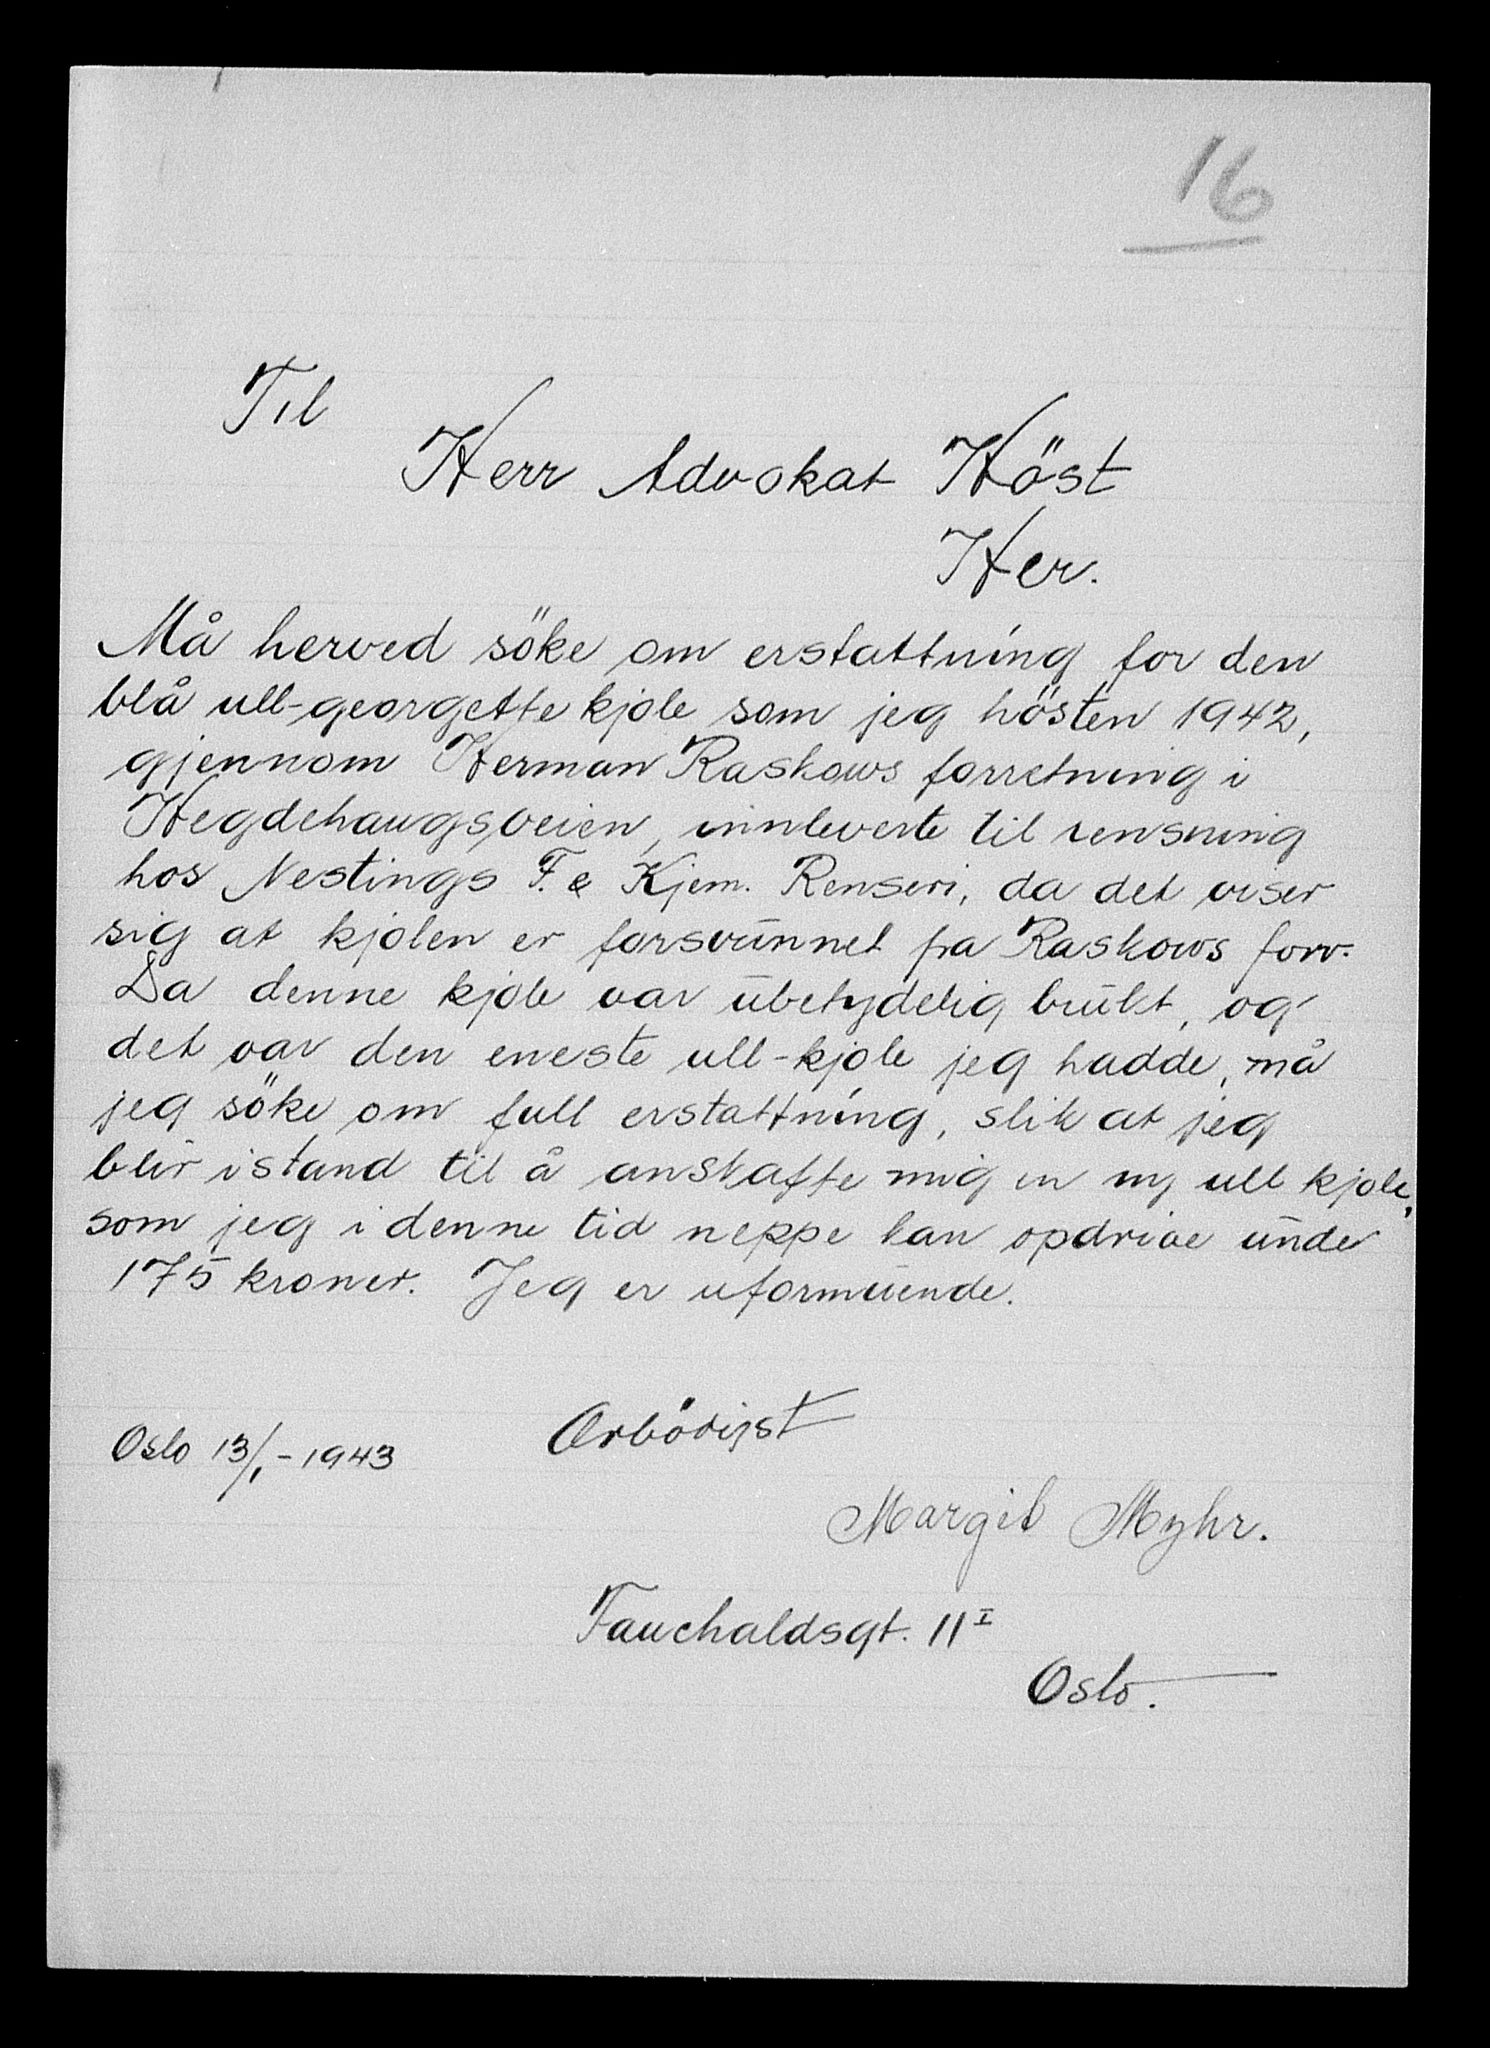 16
Til
Herr Advokat Höst
Her.
Må herved söke om erstattning for den
blå ull-georgette kjole som jeg hösten 1942,
gjennom Herman Raskows forretning i
Hegdehaugsveien, innleverte til rensning
hos Nestings F. & Kjem. Renseri, da det viser
sig at kjolen er forsvunnet fra Raskows forr.
Da denne kjole var ubetydelig brukt, og
det var den eneste ull-kjole jeg hadde, må
jeg söke om full erstattning, slik at jeg
blir istand til å anskaffe mig en ny ull kjole,
som jeg i denne tid neppe kan opdrive under
175 kroner. Jeg er uformuende.
Ærbödigst
Oslo 13/1-1943
Margit Myhr.
Fauchaldsgt. 11 I
Oslo.